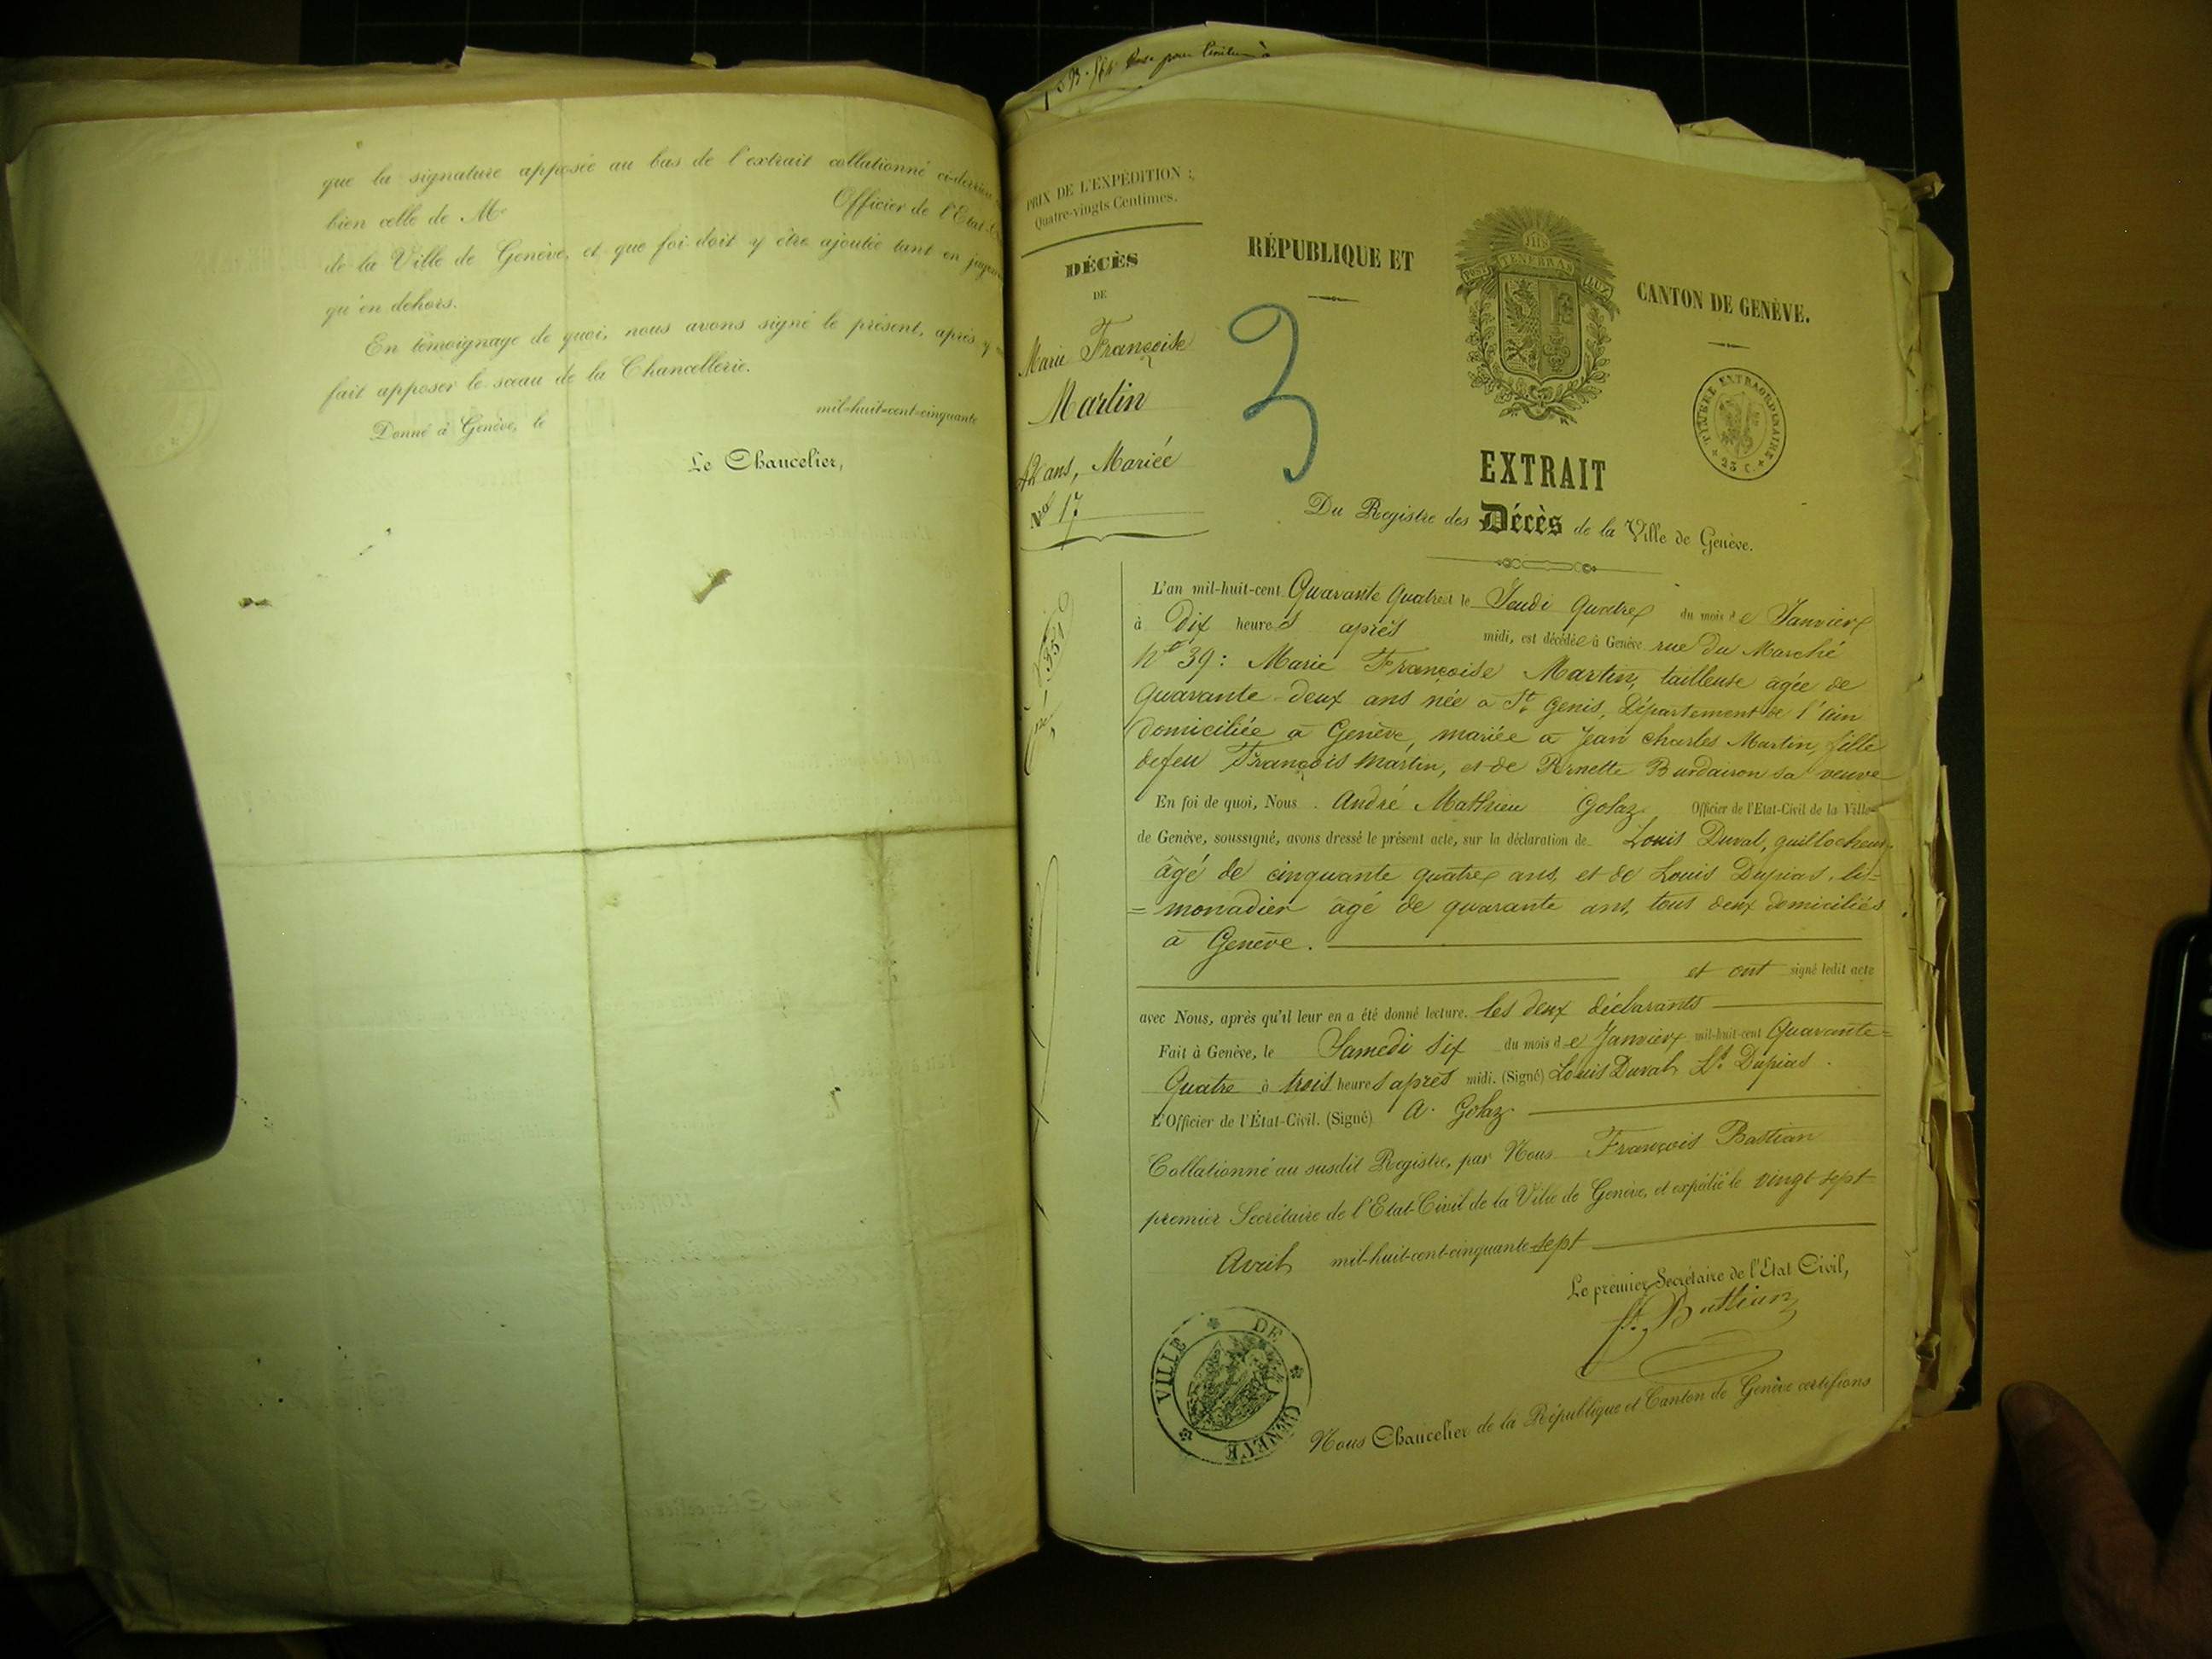 que la signature apposée au bas de l'extrait collationné ci-derrière
bien celle de Mr Officier de l'Etat
de la Ville de Genève, et que foi doit y être ajoutée tant en
qu'en dehors.
En témoignage de quoi, nous avons signé le présent, après y
fait apposer le sceau de la Chancellerie.
Donné à Genève, le mil-huit-cent-cinquante
Le Chancelier,
pour
PRIX DE L'EXPÉDITION :
Quatre-vingts Centimes.
DÉCÈS
DE
Marie Françoise
Martin
42 ans, Mariée
No 17
3
RÉPUBLIQUE ET
CANTON DE GENÈVE.
JHS
POST TENEBRAS LUX
TIMBRE EXTRAORDINAIRE
25 C.
EXTRAIT
Du Registre des Décès de la Ville de Genève.
L'an mil-huit-cent Quarante Quatre et le Jeudi quatre du mois de Janvier
à Dix heures après midi, est décédée à Genève rue du Marché
No 39 : Marie Françoise Martin, tailleuse âgée de
quarante-deux ans née à St Genis, Département de l'Ain
domiciliée à Genève, mariée à Jean Charles Martin, fille
de feu François Martin, et de Pernette Burdairon sa veuve
En foi de quoi, Nous André Mathieu Golaz Officier de l'Etat-Civil de la Ville
de Genève, soussigné, avons dressé le présent acte, sur la déclaration de Louis Duval, guillocheur,
âgé de cinquante quatre ans, et de Louis Dupias, li=
=monadier âgé de quarante ans, tous deux domiciliés
à Genève.
et ont signé ledit acte
avec Nous, après qu'il leur en a été donné lecture. les deux déclarants
Fait à Genève, le Samedi six du mois de Janvier mil-huit-cent Quarante=
Quatre à trois heures après midi. (Signé) Louis Duval, Ls. Dupias.
L'Officier de l'État-Civil. (Signé) A. Golaz.
Collationné au susdit Registre, par Nous François Bastian
premier Secrétaire de l'Etat-Civil de la Ville de Genève, et expédié le vingt sept
Avril mil-huit-cent-cinquante-sept
Le premier Secrétaire de l'Etat Civil,
fs. Bastian
VILLE DE GENEVE
Nous Chancelier de la République et Canton de Genève certifions